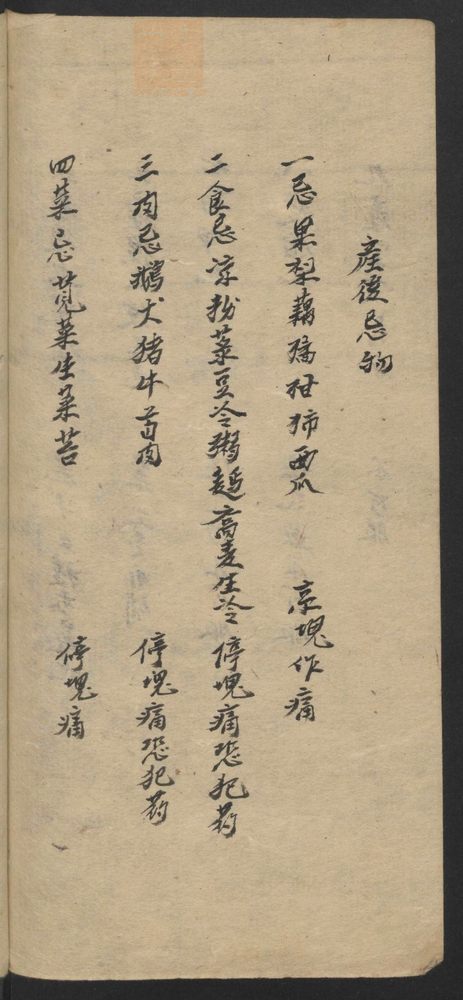 產後忌物
一忌果梨藕橘柑柿西瓜 停塊作痛
二食忌凉粉菉豆冷粥蕎麦生冷 停塊痛恐犯药
三肉忌鵝犬猪牛首肉 停塊痛恐犯药
四菜忌莧菜生菜苔 停塊痛